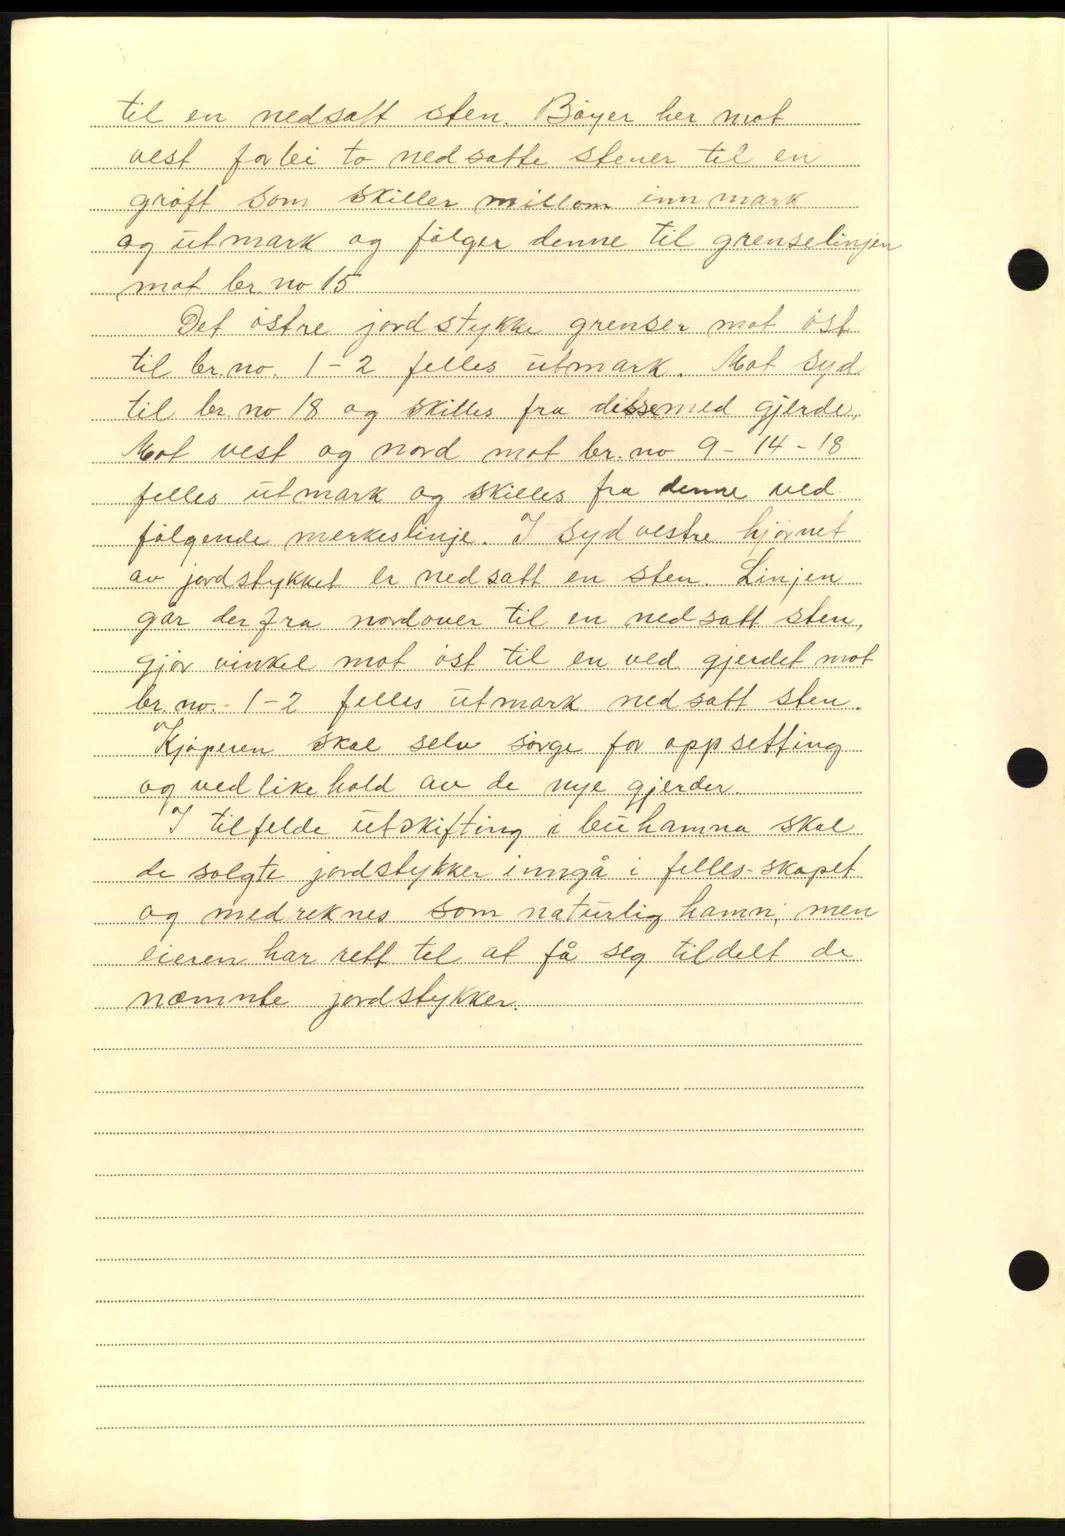 til en nedsatt sten. Bøyer her mot
vest forbi to nedsatte stener til en
grøft som skiller millom innmark
og utmark og følger denne til grenselinjen
mot br. no 15
Det østre jordstykke grenser mot øst
til br. no. 1-2 felles utmark. Mot syd
til br. no 18 og skilles fra disse med gjerde,
Mot vest og nord mot br. no 9-14-18
felles utmark og skilles fra denne ved
følgende merkeslinje. I sydvestre hjørnet
av jordstykket er nedsatt en sten. Linjen
går der fra nordover til en nedsatt sten,
gjør vinkel mot øst til en ved gjerdet mot
br. no. 1-2 felles utmark nedsatt sten.
Kjøperen skal selv sørge for oppsetting
og vedlikehold av de nye gjerder.
I tilfelde utskifting i buhamna skal
de solgte jordstykker inngå i felles-skapet
og medreknes som naturlig hamn, men
eieren har rett til at få seg tildelt de
næmnte jordstykker.